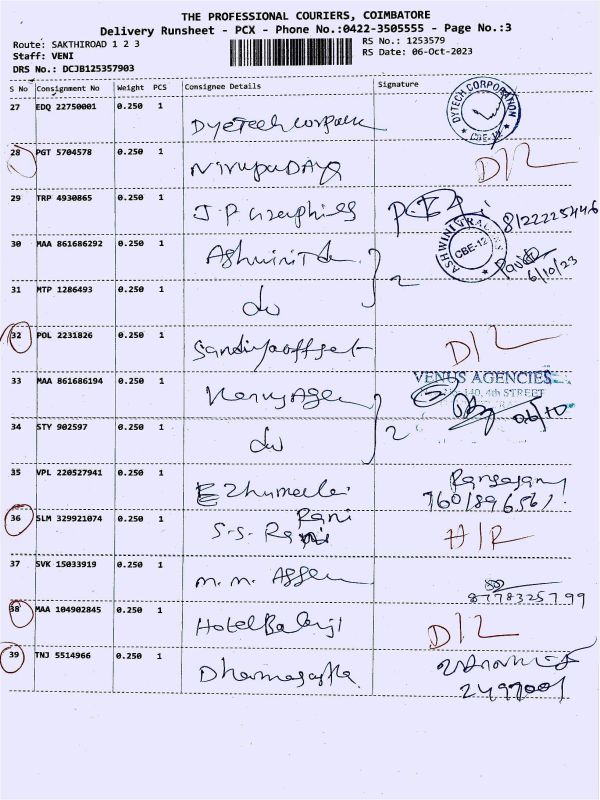 THE PROFESSIONAL COURIERS, COIMBATORE
Delivery Runsheet - PCX - Phone No.:0422-3505555 - Page No.:3
Route: SAKTHIROAD 1 2 3
RS No.: 1253579
Staff: VENI
RS Date: 06-Oct-2023
DRS No.: DCJB125357903
S No Consignment No Weight PCS Consignee Details Signature
27 EDQ 22750001 0.250 1
DYTECH CORPORATION
CBE-12
28 PGT 5704578 0.250 1
D/L
29 TRP 4930865 0.250 1
J.P Graphics
8122225446
30 MAA 861686292 0.250 1
2
CBE-12
6/10/23
31 MTP 1286493 0.250 1
do
32 POL 2231826 0.250 1
Sandiyaoffset
D/L
33 MAA 861686194 0.250 1
Venus Agen
VENUS AGENCIES
140, 4th STREET
06/10
34 STY 902597 0.250 1
do
2
35 VPL 220527941 0.250 1
Ezhumalai
36 SLM 329921074 0.250 1
S.S. Rani
H/R
37 SVK 15033919 0.250 1
m.m.
8778325799
38 MAA 104902845 0.250 1
Hotel Balaji
D/L
39 TNJ 5514966 0.250 1
2497001